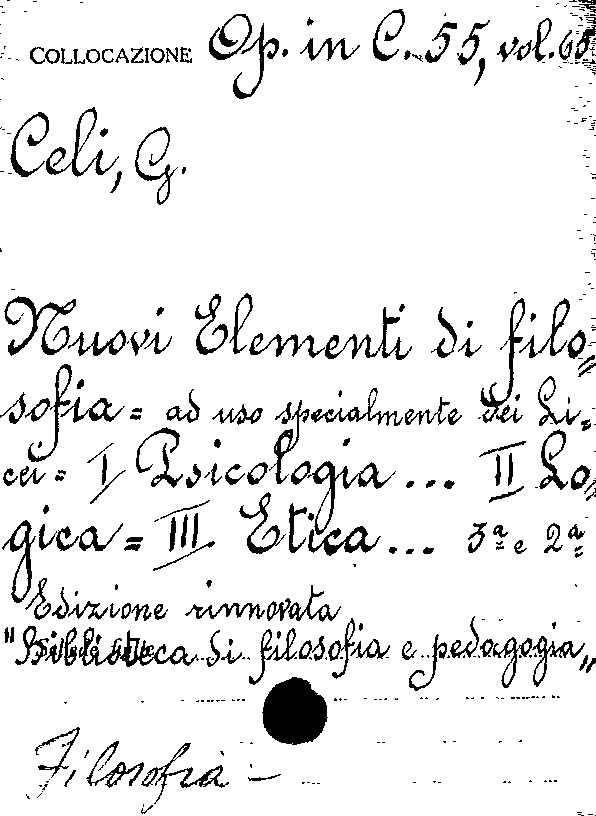 COLLOCAZIONE Op. in C. 55, vol. 65
Celi, G.
Nuovi Elementi di filo=
sofia = ad uso specialmente dei Li=
cei = I Psicologia ... II Lo=
gica = III. Etica ... 3ª e 2ª
Edizione rinnovata
"Biblioteca di filosofia e pedagogia"
Filosofia -